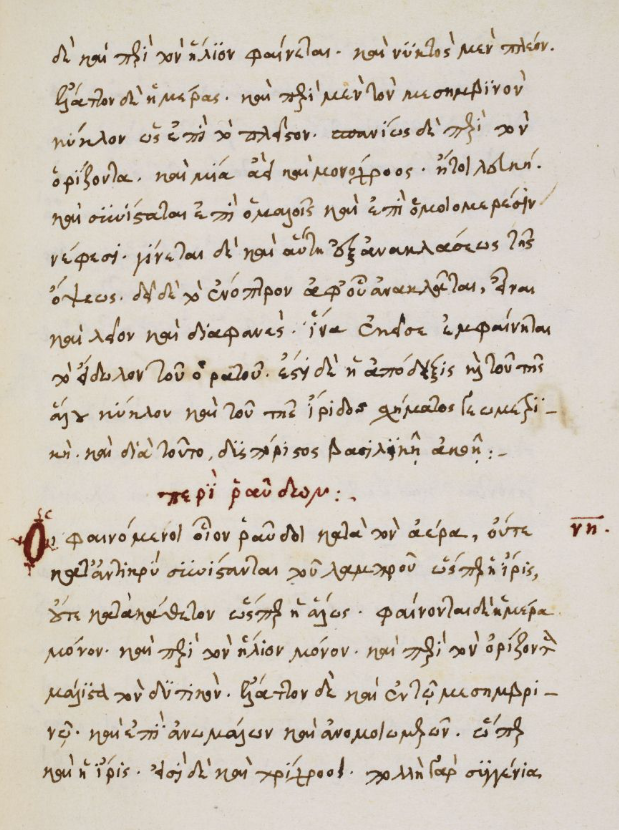 δὲ καὶ περὶ τὸν ἥλϊον φαίνεται· καὶ νϋκτὸς μὲν πλέον.
ἔλαττον δὲ ἡμέρας· καὶ περὶ μὲν τὸν μεσημβϊνὸν
κύκλον ὡς ἐπὶ τὸ πλεῖστον· σπανίως δὲ περὶ τὸν
ὁρίζοντα. καὶ μία ἀεὶ καὶ μονόχροος· ἤτοι λευκή.
καὶ σϋνίσταται ἐπὶ ὁμαλοῖς καὶ ἐπὶ ὁμοιομερέσϊν
νέφεσι· γίνεται δὲ καὶ αὕτη ἐξ ἀνακλάσεως τῆς
ὄψεως. δεῖ δὲ τὸ ἔνοπτρον ἀφ' οὗ ἀνακλᾶται, εἶναι
καὶ λεῖον καὶ διαφανὲς· ἵνα ἐκεῖσε ἐμφαίνηται
τὸ εἴδωλον τοῦ ὁρατοῦ· ἔστι δὲ ἡ ἀπόδειξις καὶ τοῦ τῆς
ἅλω κύκλου καὶ τοῦ τῆς ἴριδος σχήματος γεωμετρϊ-
κή. καὶ διὰ τοῦτο, δϋσπόριστος βασιλϊκῇ ἀκοῇ:-
περὶ ῥαύδων:.
Οἱ φαινόμενοι οἷον ῥαύδοι κατὰ τὸν ἀέρα, οὔτε νη.
κατ' ἀντικρὺ σϋνίστανται τοῦ λαμπροῦ ὥσπερ ἡ ἶρις,
οὔτε κατὰ κάθετον ὥσπερ ἡ ἅλως· φαίνονται δὲ ἡμέρα
μόνον· καὶ περὶ τὸν ἥλϊον μόνον· καὶ περὶ τὸν ὁρίζοντα
μάλϊστα τὸν δϋτικόν· ἔλαττον δὲ καὶ ἐν τῷ μεσημβρι-
νῷ· καὶ ἐπὶ ἀνωμάλων καὶ ἀνομοιομερῶν· ὥσπερ
καὶ ἡ ἶρις· εἰσὶ δὲ καὶ τρίχροοι· πολλὴ γὰρ σϋγγένια